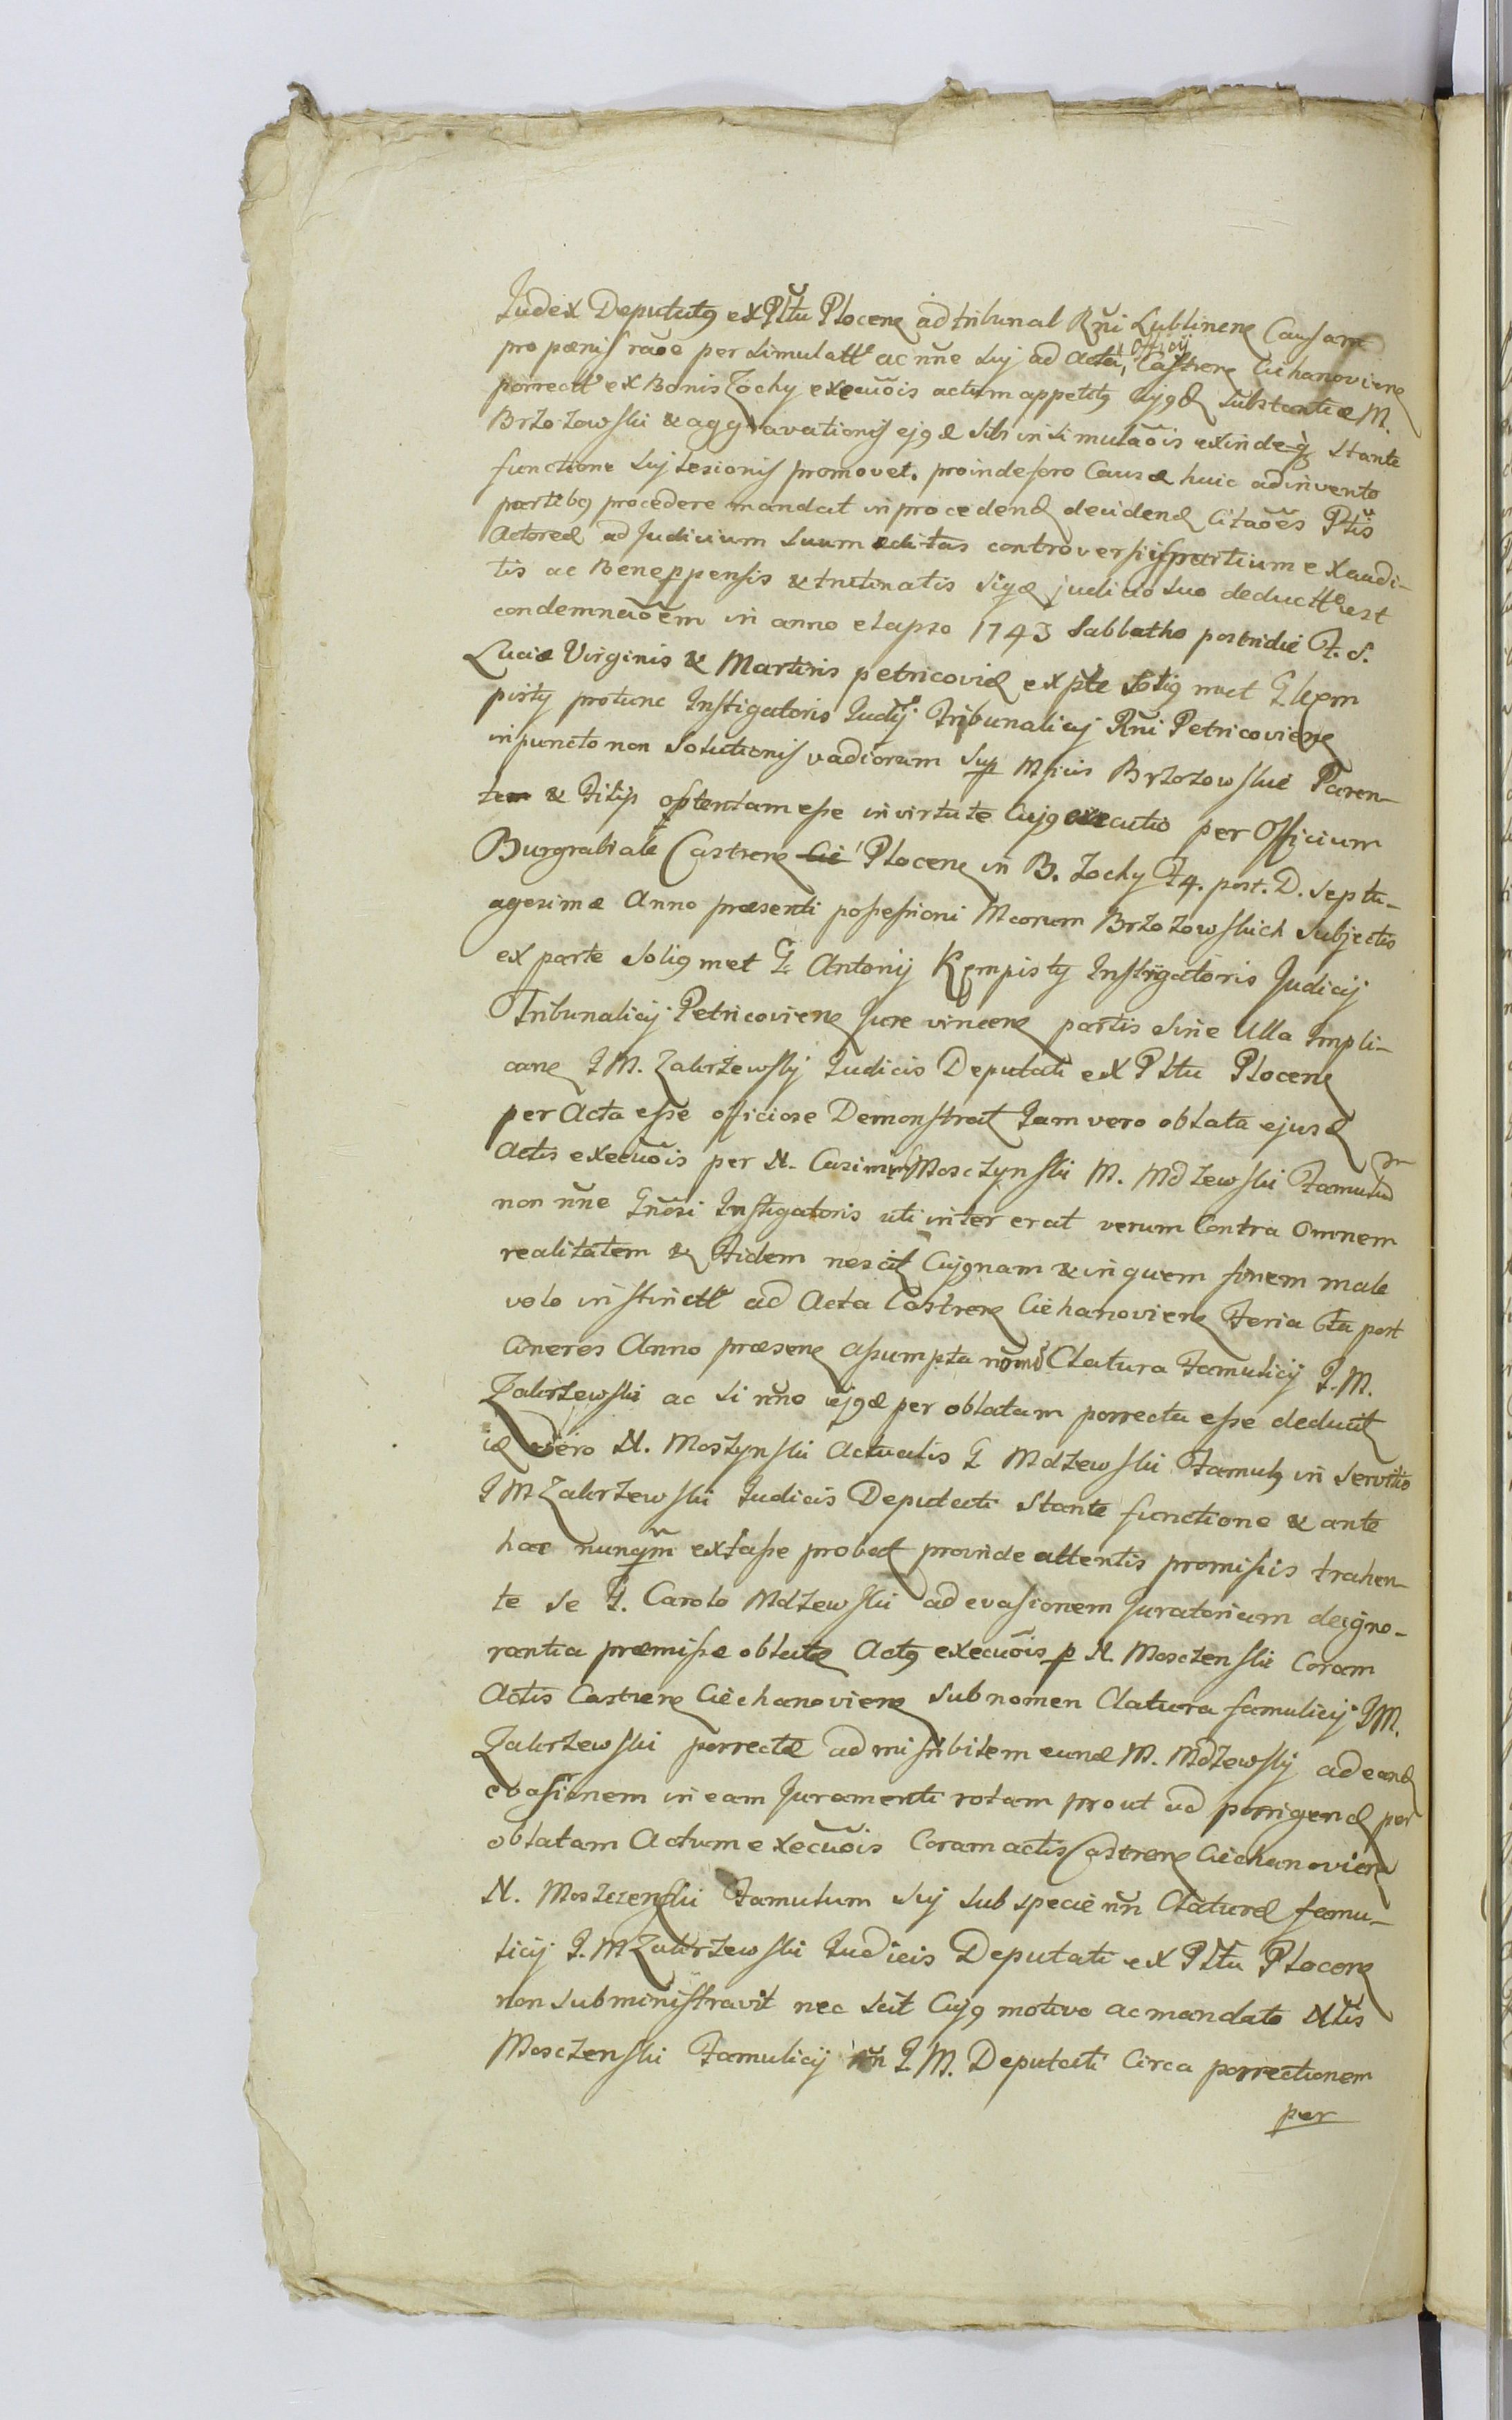 Judex Deputatg ex Pltu Plocene ad tribunal Rñi Lublinene Causam
pro pænis raõe per simulatt ac nñe suj ad Acta Officij Castrene Ciehanoviene
porrectt ex Bonis Zochy execuõis actum appetitg ejgd substantiæ M.
Brzozowski & aggravationis ejgd sibi insimulaõis exinde q̀ stante
functione suj lesionis promovet. proinde foro Causæ huic adinvento
partibg procedere mandat in procedend decidend Citaões Ptis
Actoreæ ad Judicium suum æditas controversiis partium exaudi-
tis ac Bene ppensis & trutinatis siqd judicio suo deductt est
condemnaõem in anno elapso 1743 Sabbatho postridie F. S.
Luciæ Virginis & Martiris petricoviæ ex pte Solig met G Kem
pisty protunc Instigatoris Judij Tribunalicij Rñi Petricoviene
in puncto non Solutionis vadiorum sup Mficis Brzozowskie Paren-
tem & Filip obtentam esse in virtute Cujg executio per Officium
Burgrabiale Castrene Cie Plocene in B. Zochy F4. post. D. Septu-
agesimæ Anno præsenti possessioni Mcorum Brzozowskich subjectis
ex parte Solig met G Antonij Kempisty Instigatoris Judicij
Tribunalicij Petricoviene Jure vincene partis sine Ulla Impli-
cane J M. Zakrzewskj Judicis Deputati ex Pltu Plocene
per Acta esse officiose Demonstrat Jam vero oblata ejusd
Actis execuõis per N. Casimir Mosczynski M. Mdzewski Famulum
non nñe Gnõsi Instigatoris uti inter erat verum Contra Omnem
realitatem & Fidem nescit Cujgnam & in quem finem male
volo instinctt ad Acta Castrene Ciehanoviene Feria 6ta post
Cineres Anno præsene assumpta nom Clatura Famulicij J. M.
Zakrzewski ac si nñe ejgd per oblatam porrecta esse deducit
id vero N. Moszynski Actualis G Mdzewski Famulg in servitio
J M Zakrzewski Judicis Deputati Stante functione & ante
hac nunqm extasse probat proinde attentis promissis trahen-
te se G. Carolo Mdzewski ad evasionem Juratorium de igno-
rantia præmissæ oblatæ Actg execuõis p N. Mosczenski Coram
Actis Castrene Ciechanoviene sub nomen Clatura famulicij JM.
Zakrzewski porrectæ admissibilem eund M. Mdzewskj ad eand
evasionem in eam Juramenti rotam prout ad porrigend per
oblatam Actum execuõis Coram actis Castrene Ciechanoviene
N. Moszczenski Famulum suj sub specie nñ Claturæ famu-
licij J. M Zakrzewski Judicis Deputati ex Pltu Plocene
non subministravit nec scit Cujg motivo ac mandato Nlis
Mosczenski Famulicij nñ J M. Deputati Circa porrectionem
per